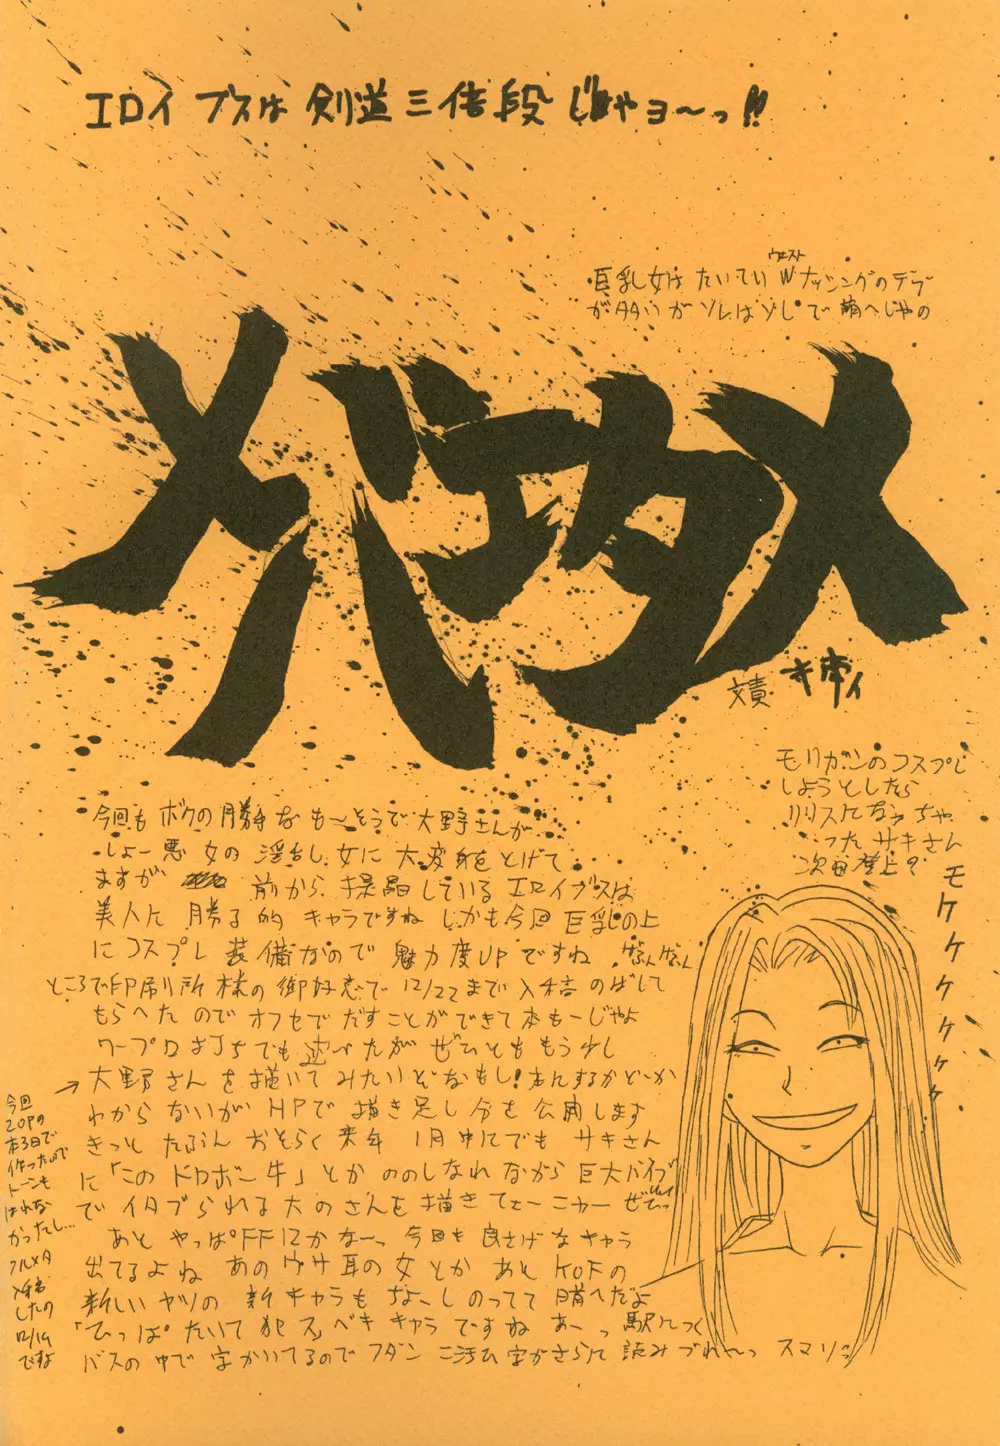 エロイ ブスは 剣道 三倍段 じゃヨ〜っ!!
ウエスト
巨乳女は たいてい Wナッシングのデブ
が多いが ソレはソレで 萌へじゃの
メバエタメ
文責
モリガンのコスプレ
しようとしたら
リリスになっちゃ
った サキさん
次回 登上?
モケケケケケケ
今回も ボクの勝手な も〜そうで 大野さんが
しょー悪 女の 淫乱し女に 大変身をとげて
ますが 前から 提唱している エロイブスは
美人に 勝る 的 キャラですね しかも今回 巨乳の上
にコスプレ 装備なので 魅力度UPですね
ところで印刷所 様の 御好意で 12/22まで 入稿 のばして
もらへたので オフセで だすことができて本もーじゃよ
ワープロ打ちでも 述べたが ぜひともも う少し
→大野さん を 描いて みたいぞなもし! 本にするかどーか
わからないが HPで 描き足し分を 公開します
きっと たぶん おそらく 来年 1月中にでも サキさん
に 「この ドロボー牛」とか ののしなれ ながら 巨大バイブ
で イタブられる 大のさんを 描きてェーニャー ぜひっ
あと やっぱ FF12かなーっ 今回も 良さげな キャラ
出てるよね あの ウサ耳の女 とか あと KOFの
新しいヤツの 新キャラも なーしのってて 萌へだよ
「ひっぱたいて 犯ス」ベキ キャラ ですね あーっ 駅につく
バスの中で 字かいてるので フダン ニ汚ひ字がさらに 読みづれ〜っ スマソ
今回
20Pの
本3日で
作ったので
トーンも
はれな
かったし…
フルメタ
入稿
したの
12/19
ですよ